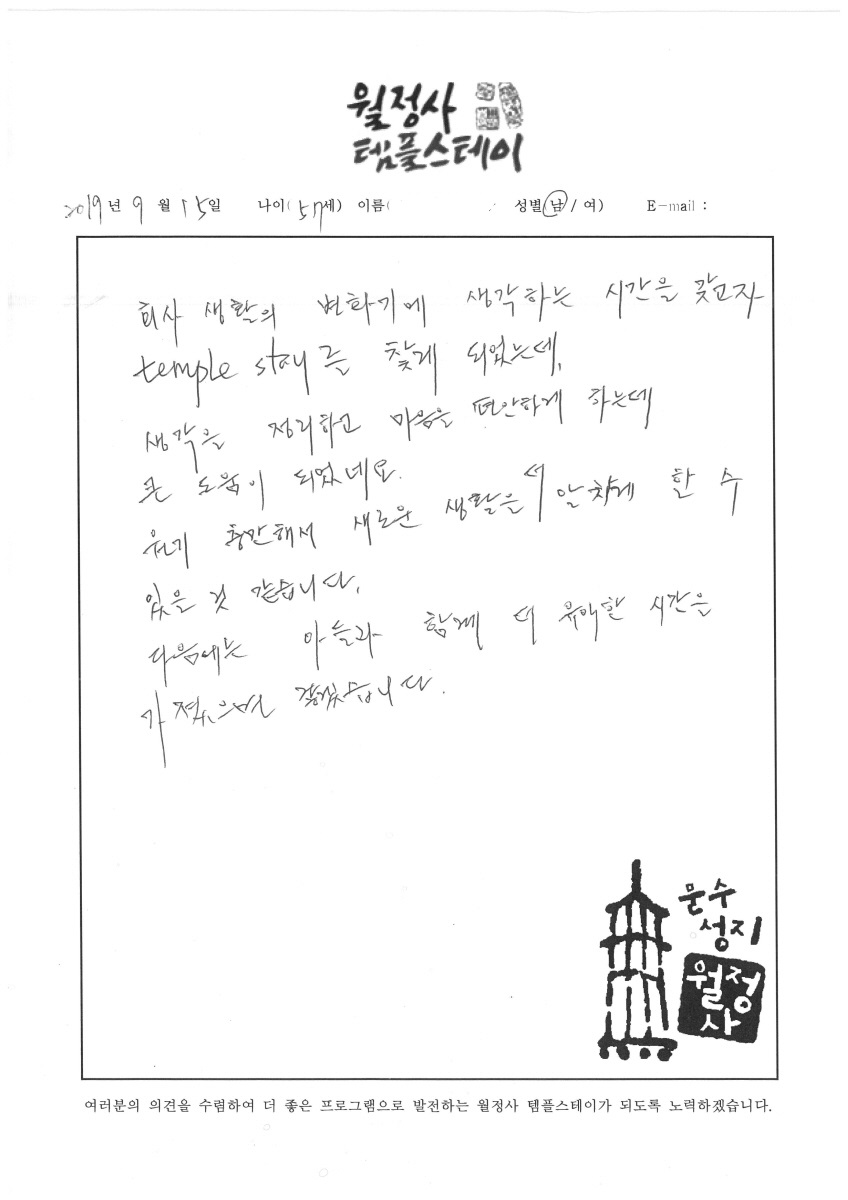 월정사
템플스테이
2019년 9월 15일 나이(57세) 이름( 성별(남/여) E-mail :
회사 생활의 변화기에 생각하는 시간을 갖고자
temple stay를 찾게 되었는데,
생각을 정리하고 마음을 편안하게 하는데
큰 도움이 되었네요.
원기 충만해서 새로운 생활을 더 알차게 할 수
있을 것 같습니다.
다음에는 아들과 함께 더 유익한 시간을
가졌으면 좋겠습니다.
문수
성지
월정
사
여러분의 의견을 수렴하여 더 좋은 프로그램으로 발전하는 월정사 템플스테이가 되도록 노력하겠습니다.